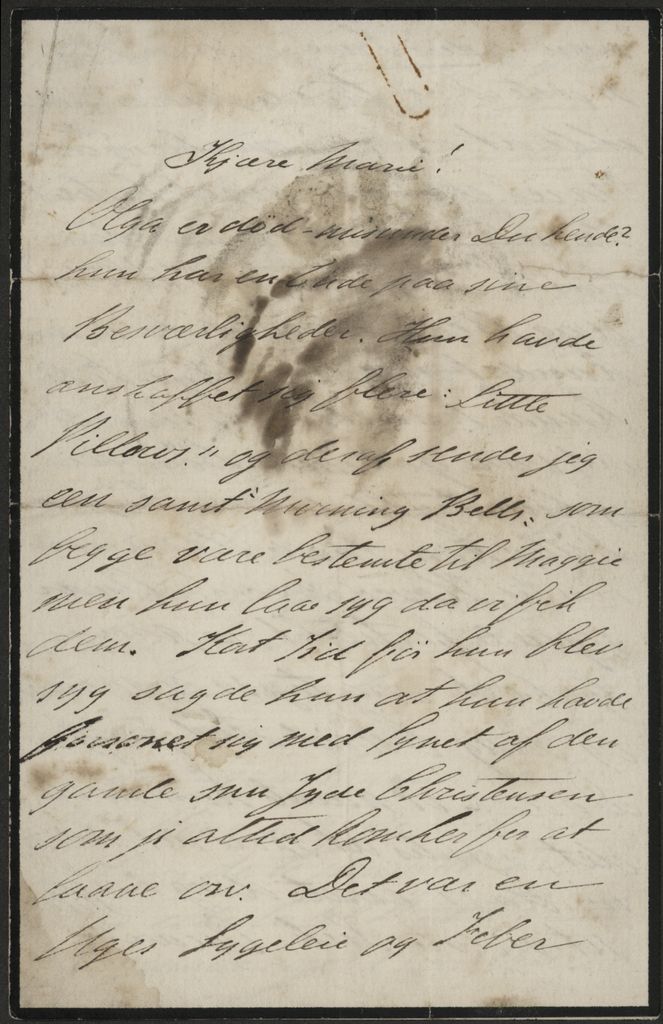 Kjære Marie!
Olga er død - misunder Du hende?
hun har en Ende paa sine
Besværligheder. Hun havde
anskaffet sig flere: "Little
Pillows" og deraf sender jeg
een samt "Morning Bells" som
begge vare bestemte til Maggie
men hun laae syg da vi fik
dem. Kort Tid før hun blev
syg sagde hun at hun havde
forsonet sig med Synet af den
gamle Jyde Christensen
som jo altid kom her for at
laane ow. Det var en
Uges Sygeleie og Feber